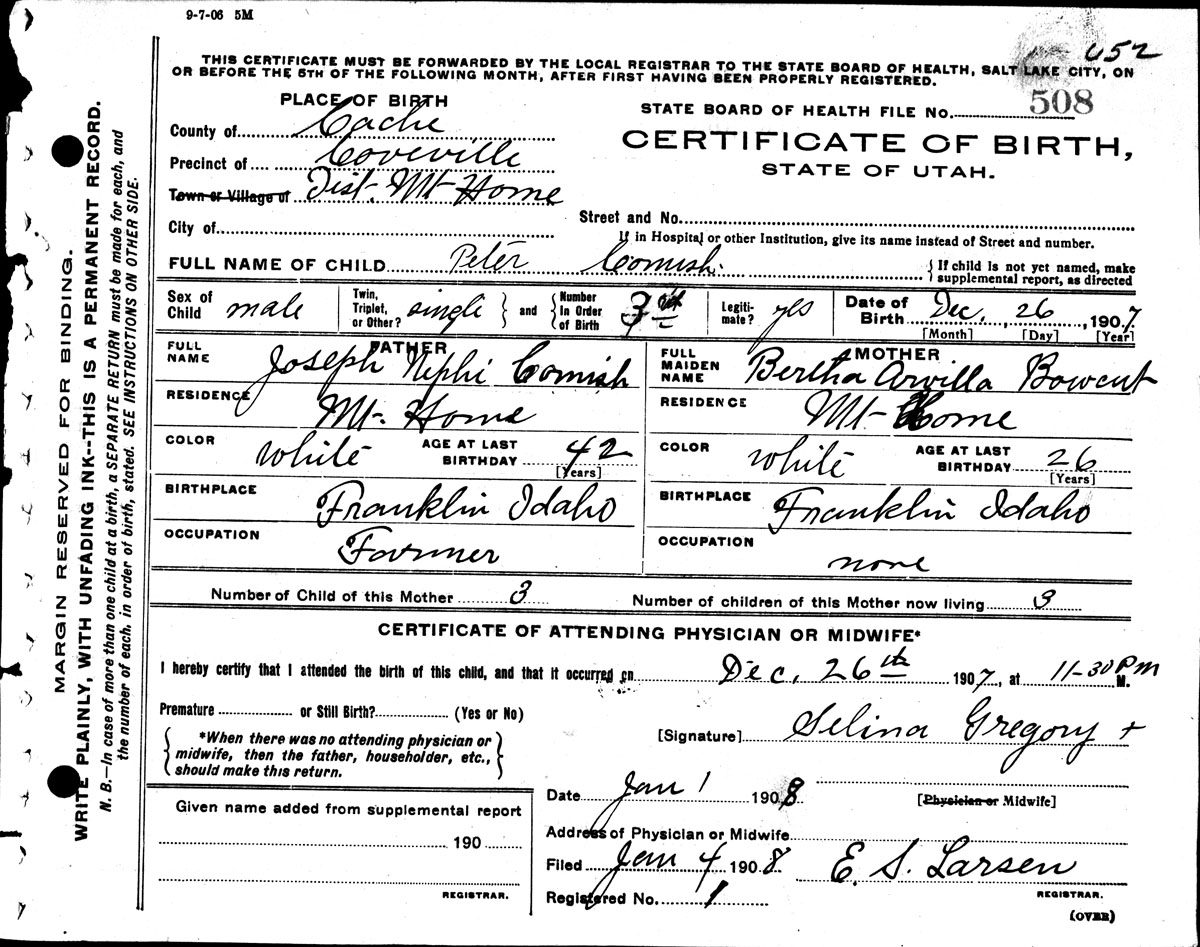 9-7-06 5M
652
THIS CERTIFICATE MUST BE FORWARDED BY THE LOCAL REGISTRAR TO THE STATE BOARD OF HEALTH, SALT LAKE CITY, ON
OR BEFORE THE 5TH OF THE FOLLOWING MONTH, AFTER FIRST HAVING BEEN PROPERLY REGISTERED.
PLACE OF BIRTH
County of Cache
Precinct of Coveville
Town or Village of Dist. Mt Home
City of
STATE BOARD OF HEALTH FILE No. 508
CERTIFICATE OF BIRTH,
STATE OF UTAH.
Street and No.
If in Hospital or other Institution, give its name instead of Street and number.
FULL NAME OF CHILD Peter Cornish { If child is not yet named, make
supplemental report, as directed
Sex of Child male Twin, Triplet, or Other? single } and { Number In Order of Birth 3rd Legitimate? yes Date of Birth Dec. 26, 1907
[Month] [Day] [Year]
FATHER
FULL NAME Joseph Nephi Cornish
RESIDENCE Mt. Home
COLOR white AGE AT LAST BIRTHDAY 42
[Years]
BIRTHPLACE Franklin Idaho
OCCUPATION Farmer
MOTHER
FULL MAIDEN NAME Bertha Arvilla Bowcut
RESIDENCE Mt Home
COLOR white AGE AT LAST BIRTHDAY 26
[Years]
BIRTHPLACE Franklin Idaho
OCCUPATION none
Number of Child of this Mother 3 Number of children of this Mother now living 3
CERTIFICATE OF ATTENDING PHYSICIAN OR MIDWIFE*
I hereby certify that I attended the birth of this child, and that it occurred on Dec. 26th 1907, at 11-30 P m M.
Premature or Still Birth? (Yes or No)
*When there was no attending physician or
midwife, then the father, householder, etc.,
should make this return.
[Signature] Selina Gregory +
Date Jan 1 1908 [Physician or Midwife]
Address of Physician or Midwife
Filed Jan 4 1908 E. S. Larsen
Registered No. 1 REGISTRAR.
(OVER)
Given name added from supplemental report
190
REGISTRAR.
MARGIN RESERVED FOR BINDING.
WRITE PLAINLY, WITH UNFADING INK--THIS IS A PERMANENT RECORD.
N. B.—In case of more than one child at a birth, a SEPARATE RETURN must be made for each, and
the number of each, in order of birth, stated. SEE INSTRUCTIONS ON OTHER SIDE.